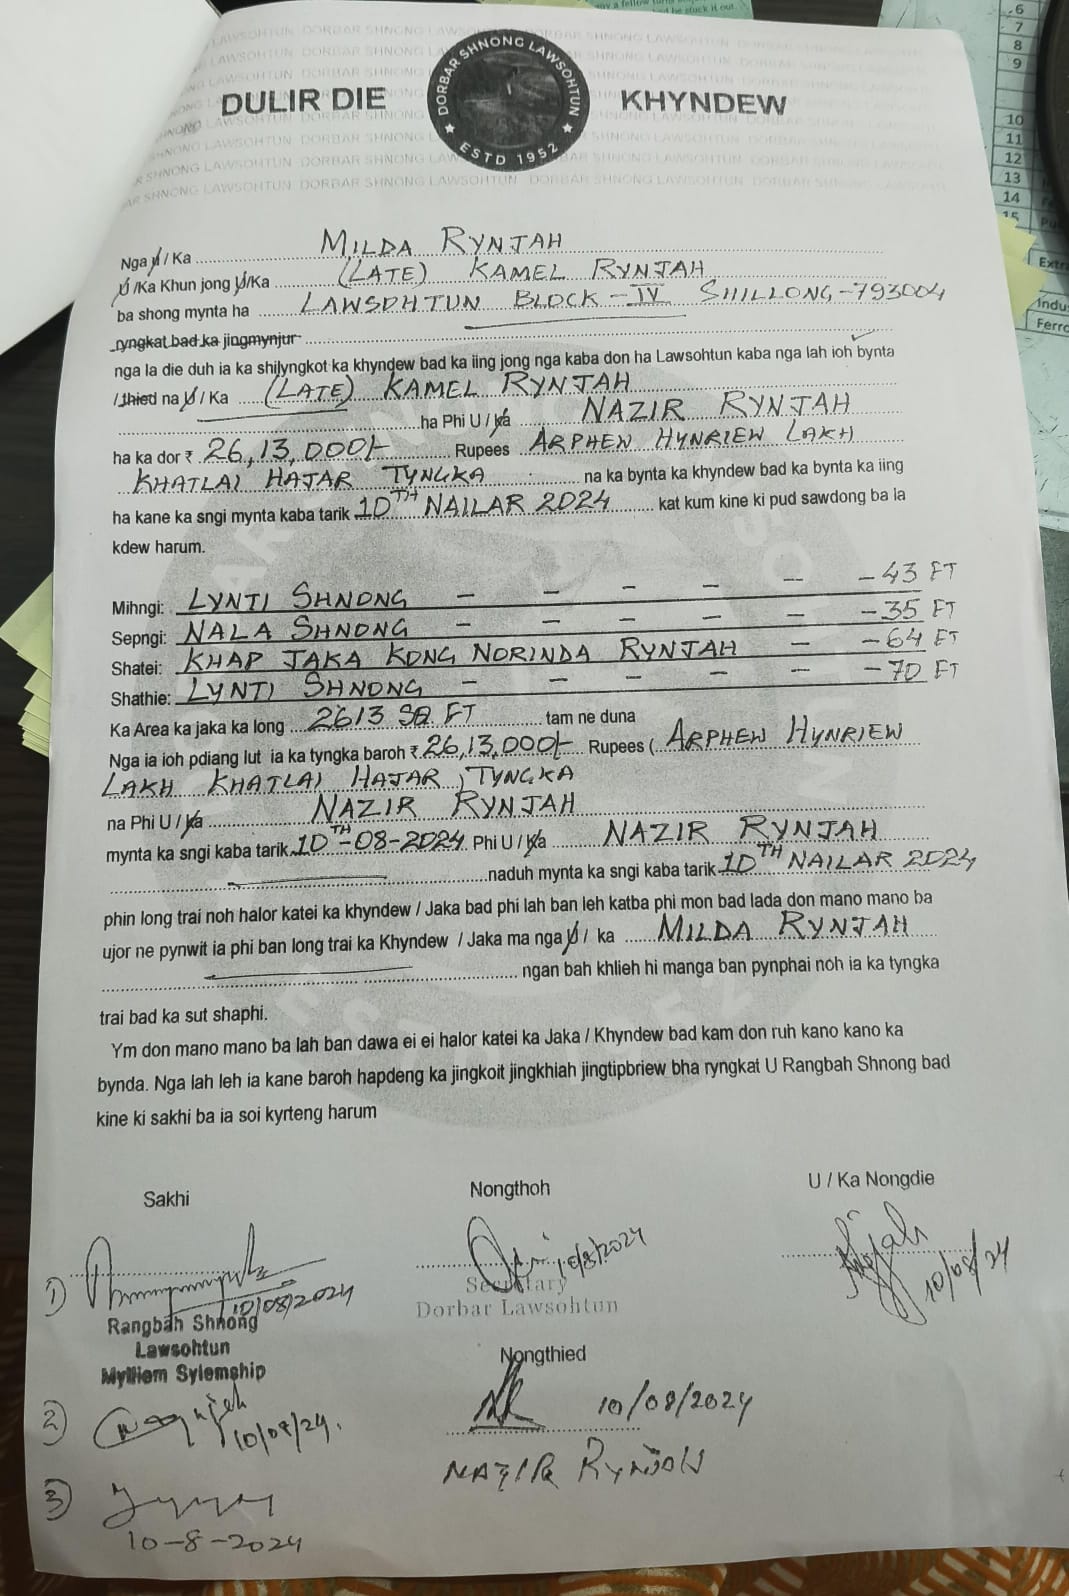 any a fellow
he stuck it out.
6
7
8
9
10
11
12
13
14
15
Extr
Indu
Ferro
DORBAR SHNONG LAWSOHTUN
ESTD 1952
DULIR DIE KHYNDEW
Nga U / Ka MILDA RYNJAH
U /Ka Khun jong U/Ka (LATE) KAMEL RYNJAH
ba shong mynta ha LAWSOHTUN BLOCK - IV SHILLONG-793004
ryngkat bad ka jingmynjur
nga la die duh ia ka shilyngkot ka khyndew bad ka iing jong nga kaba don ha Lawsohtun kaba nga lah ioh bynta
/ thied na U / Ka (LATE) KAMEL RYNJAH
ha Phi U / Ka NAZIR RYNJAH
ha ka dor ₹ 26,13,000/- Rupees ARPHEW HYNRIEW LAKH
KHATLAI HAJAR TYNGKA na ka bynta ka khyndew bad ka bynta ka iing
ha kane ka sngi mynta kaba tarik 10TH NAILAR 2024 kat kum kine ki pud sawdong ba la
kdew harum.
Mihngi: LYNTI SHNONG - - - - - 43 FT
Sepngi: NALA SHNONG - - - - - 35 FT
Shatei: KHAP JAKA KONG NORINDA RYNJAH - - 64 FT
Shathie: LYNTI SHNONG - - - - - - 70 FT
Ka Area ka jaka ka long 2613 SQ FT tam ne duna
Nga ia ioh pdiang lut ia ka tyngka baroh ₹ 26,13,000/- Rupees ( ARPHEW HYNRIEW
LAKH KHATLAI HAJAR ) TYNGKA
na Phi U / Ka NAZIR RYNJAH
mynta ka sngi kaba tarik 10TH-08-2024 Phi U / Ka NAZIR RYNJAH
naduh mynta ka sngi kaba tarik 10TH NAILAR 2024
phin long trai noh halor katei ka khyndew / Jaka bad phi lah ban leh katba phi mon bad lada don mano mano ba
ujor ne pynwit ia phi ban long trai ka Khyndew / Jaka ma nga U / ka MILDA RYNJAH
ngan bah khlieh hi manga ban pynphai noh ia ka tyngka
trai bad ka sut shaphi.
Ym don mano mano ba lah ban dawa ei ei halor katei ka Jaka / Khyndew bad kam don ruh kano kano ka
bynda. Nga lah leh ia kane baroh hapdeng ka jingkoit jingkhiah jingtipbriew bha ryngkat U Rangbah Shnong bad
kine ki sakhi ba ia soi kyrteng harum
Sakhi Nongthoh U / Ka Nongdie
1) 10/08/2024 10/8/2024 10/08/24
Rangbah Shnong Secretary
Lawsohtun Dorbar Lawsohtun
Mylliem Syiemship
Nongthied
2) 10/08/24. 10/08/2024
NAZIR RYNJAH
3)
10-8-2024